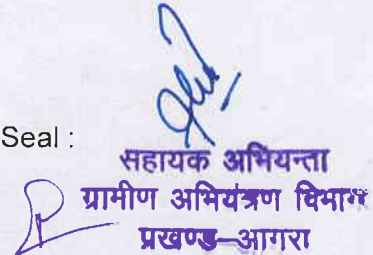 Seal :
सहायक अभियन्ता
ग्रामीण अभियंत्रण विभाग
प्रखण्ड–आगरा